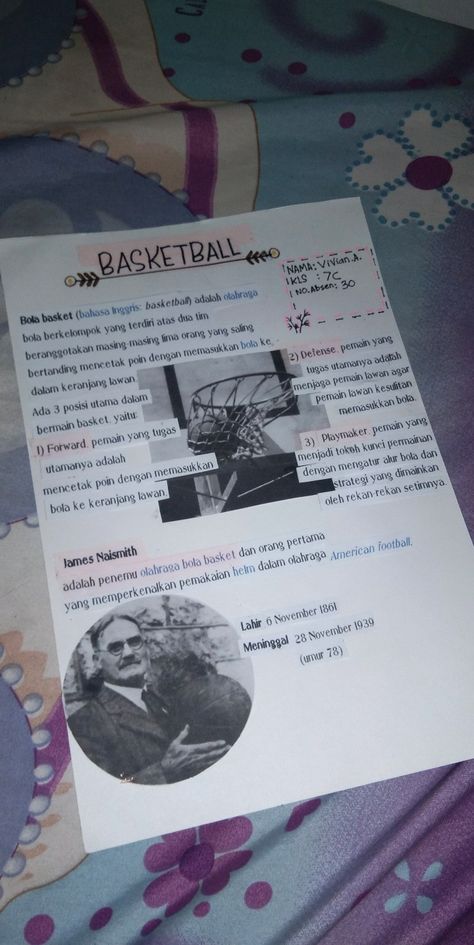 BASKETBALL
NAMA: Vivian.A.
KLS : 7C
NO.Absen: 30
Bola basket (bahasa Inggris: basketball) adalah olahraga
bola berkelompok yang terdiri atas dua tim
beranggotakan masing-masing lima orang yang saling
bertanding mencetak poin dengan memasukkan bola ke
dalam keranjang lawan.
Ada 3 posisi utama dalam
bermain basket, yaitu:
1) Forward, pemain yang tugas
utamanya adalah
mencetak poin dengan memasukkan
bola ke keranjang lawan.
2) Defense, pemain yang
tugas utamanya adalah
menjaga pemain lawan agar
pemain lawan kesulitan
memasukkan bola.
3) Playmaker, pemain yang
menjadi tokoh kunci permainan
dengan mengatur alur bola dan
strategi yang dimainkan
oleh rekan-rekan setimnya.
James Naismith
adalah penemu olahraga bola basket dan orang pertama
yang memperkenalkan pemakaian helm dalam olahraga American football.
Lahir 6 November 1861
Meninggal 28 November 1939
(umur 78)